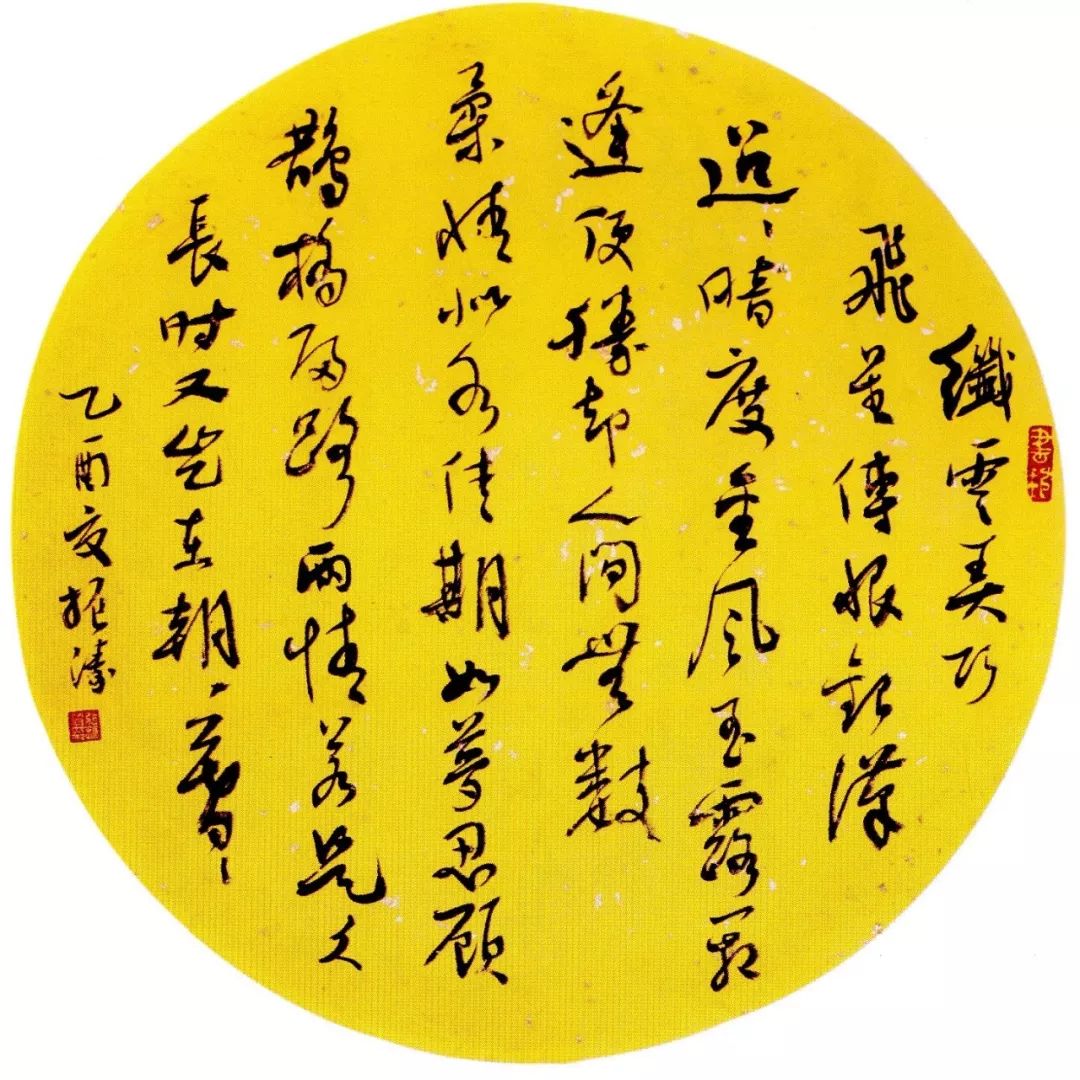 纖雲弄巧
飛星傳恨銀漢
迢々暗度金風玉露一相
逢便勝却人間無數
柔情似水佳期如夢忍顧
鵲橋歸路兩情若是久
長時又豈在朝々暮々
乙酉夏振濤